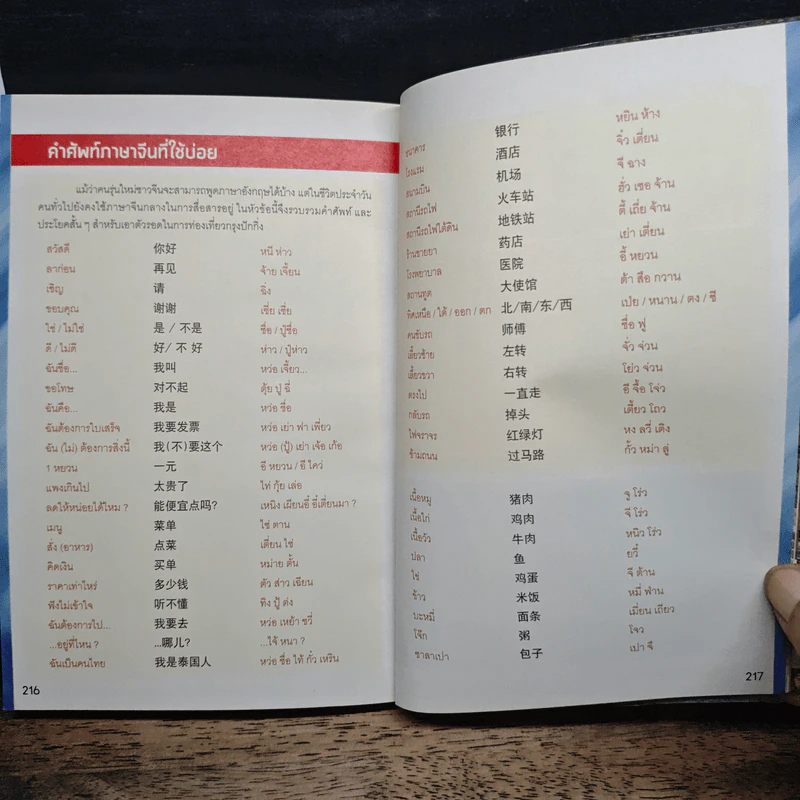 คำศัพท์ภาษาจีนที่ใช้บ่อย
แม้ว่าคนรุ่นใหม่ชาวจีนจะสามารถพูดภาษาอังกฤษได้บ้าง แต่ในชีวิตประจำวัน
คนทั่วไปยังคงใช้ภาษาจีนกลางในการสื่อสารอยู่ ในหัวข้อนี้จึงรวบรวมคำศัพท์ และ
ประโยคสั้น ๆ สำหรับเอาตัวรอดในการท่องเที่ยวกรุงปักกิ่ง
สวัสดี 你好 หนี ห่าว
ลาก่อน 再见 จ้าย เจี้ยน
เชิญ 请 ฉิ่ง
ขอบคุณ 谢谢 เซี่ย เซี่ย
ใช่ / ไม่ใช่ 是 / 不是 ชื่อ / ปู๋ชื่อ
ดี / ไม่ดี 好/ 不 好 ห่าว / ปู้ห่าว
ฉันชื่อ... 我叫 หว่อ เจี้ยว...
ขอโทษ 对不起 ตุ้ย ปู้ ฉี่
ฉันคือ... 我是 หว่อ ชื่อ
ฉันต้องการใบเสร็จ 我要发票 หว่อ เย่า ฟา เพี่ยว
ฉัน (ไม่) ต้องการสิ่งนี้ 我(不)要这个 หว่อ (ปู้) เย่า เจ้อ เก้อ
1 หยวน 一元 อี หยวน / อี ไคว่
แพงเกินไป 太贵了 ไท่ กุ้ย เล่อ
ลดให้หน่อยได้ไหม ? 能便宜点吗? เหนิง เผียนอี๋ อี้เตี่ยนมา ?
เมนู 菜单 ไช่ ตาน
สั่ง (อาหาร) 点菜 เตี่ยน ไช่
คิดเงิน 买单 หม่าย ตั้น
ราคาเท่าไหร่ 多少钱 ตัว ส่าว เฉียน
ฟังไม่เข้าใจ 听不懂 ทิง ปู้ ต่ง
ฉันต้องการไป... 我要去 หว่อ เหย้า ชวี่
...อยู่ที่ไหน ? ...哪儿? ...ไจ้ หนา ?
ฉันเป็นคนไทย 我是泰国人 หว่อ ชื่อ ไท้ กั๋ว เหริน
216
ธนาคาร 银行 หยิน ห้าง
โรงแรม 酒店 จิ่ว เตี่ยน
สนามบิน 机场 จี ฉาง
สถานีรถไฟ 火车站 ฮั่ว เชอ จ้าน
สถานีรถไฟใต้ดิน 地铁站 ตี้ เถี่ย จ้าน
ร้านขายยา 药店 เย่า เตี่ยน
โรงพยาบาล 医院 อี้ หยวน
สถานทูต 大使馆 ต้า สือ กวาน
ทิศเหนือ / ใต้ / ออก / ตก 北/南/东/西 เป่ย / หนาน / ตง / ซี
คนขับรถ 师傅 ชือ ฟู่
เลี้ยวซ้าย 左转 จั่ว จ่วน
เลี้ยวขวา 右转 โย่ว จ่วน
ตรงไป 一直走 อี จื้อ โจ่ว
กลับรถ 掉头 เตี้ยว โถว
ไฟจราจร 红绿灯 หง ลวี่ เติง
ข้ามถนน 过马路 กั้ว หม่า ลู่
เนื้อหมู 猪肉 จู โร่ว
เนื้อไก่ 鸡肉 จี โร่ว
เนื้อวัว 牛肉 หนิว โร่ว
ปลา 鱼 ยวี๋
ไข่ 鸡蛋 จี ต้าน
ข้าว 米饭 หมี่ ฟ่าน
บะหมี่ 面条 เมี่ยน เถียว
โจ๊ก 粥 โจว
ซาลาเปา 包子 เปา จึ
217